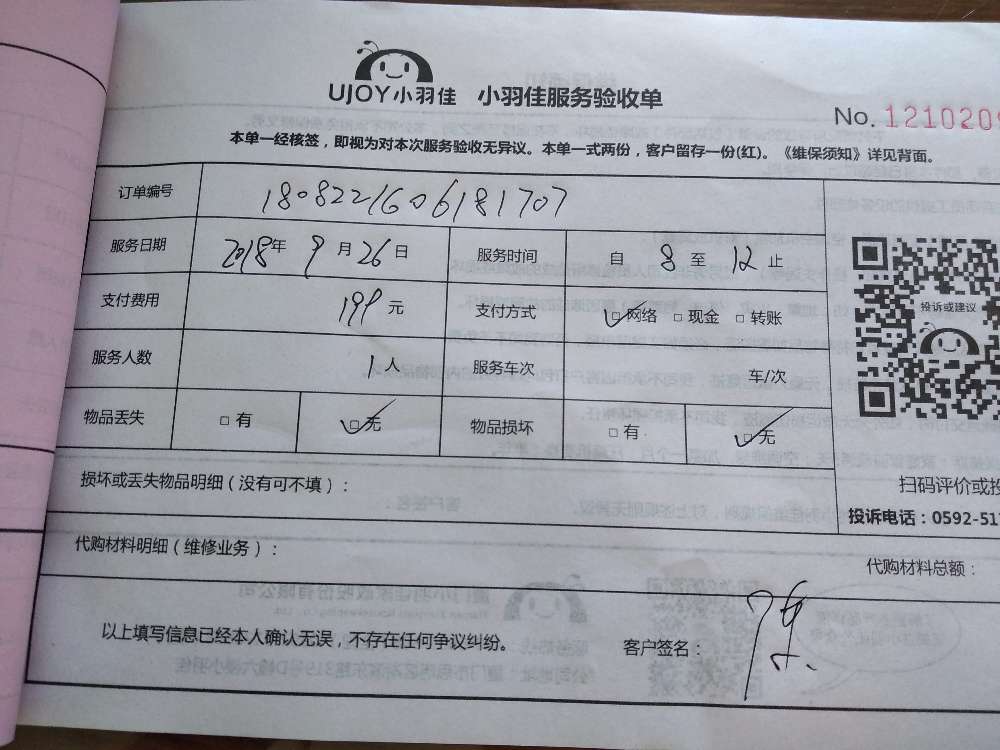 UJOY小羽佳 小羽佳服务验收单
No. 1210209
本单一经核签，即视为对本次服务验收无异议。本单一式两份，客户留存一份(红)。《维保须知》详见背面。
订单编号 1808221606181707
服务日期 2018年 9月 26日 服务时间 自 8 至 12 止
支付费用 199 元 支付方式 □网络 □现金 □转账
服务人数 1人 服务车次 车/次
物品丢失 □有 □无 物品损坏 □有 □无
投诉或建议
损坏或丢失物品明细（没有可不填）：
扫码评价或投
投诉电话：0592-517
代购材料明细（维修业务）：
代购材料总额：
以上填写信息已经本人确认无误，不存在任何争议纠纷。 客户签名：